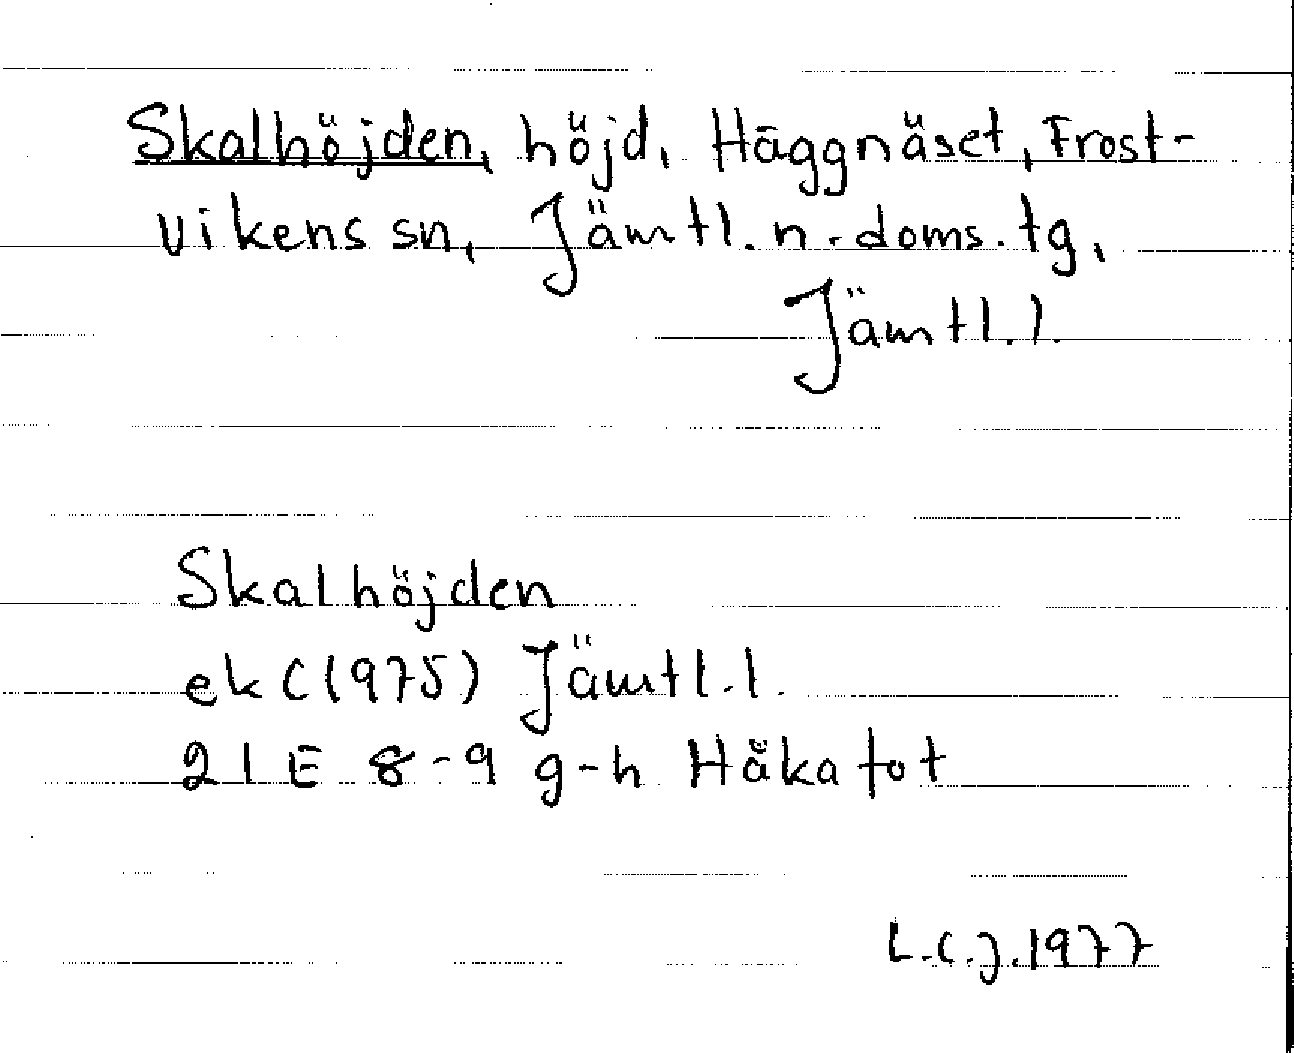 Skalhöjden, höjd, Häggnäset, Frost-
vikens sn, Jämtl. n. doms. tg,
Jämtl. l.
Skalhöjden
ek C (1975) Jämtl. l.
21 E 8-9 g-h Håkafot
L.C.J. 1977